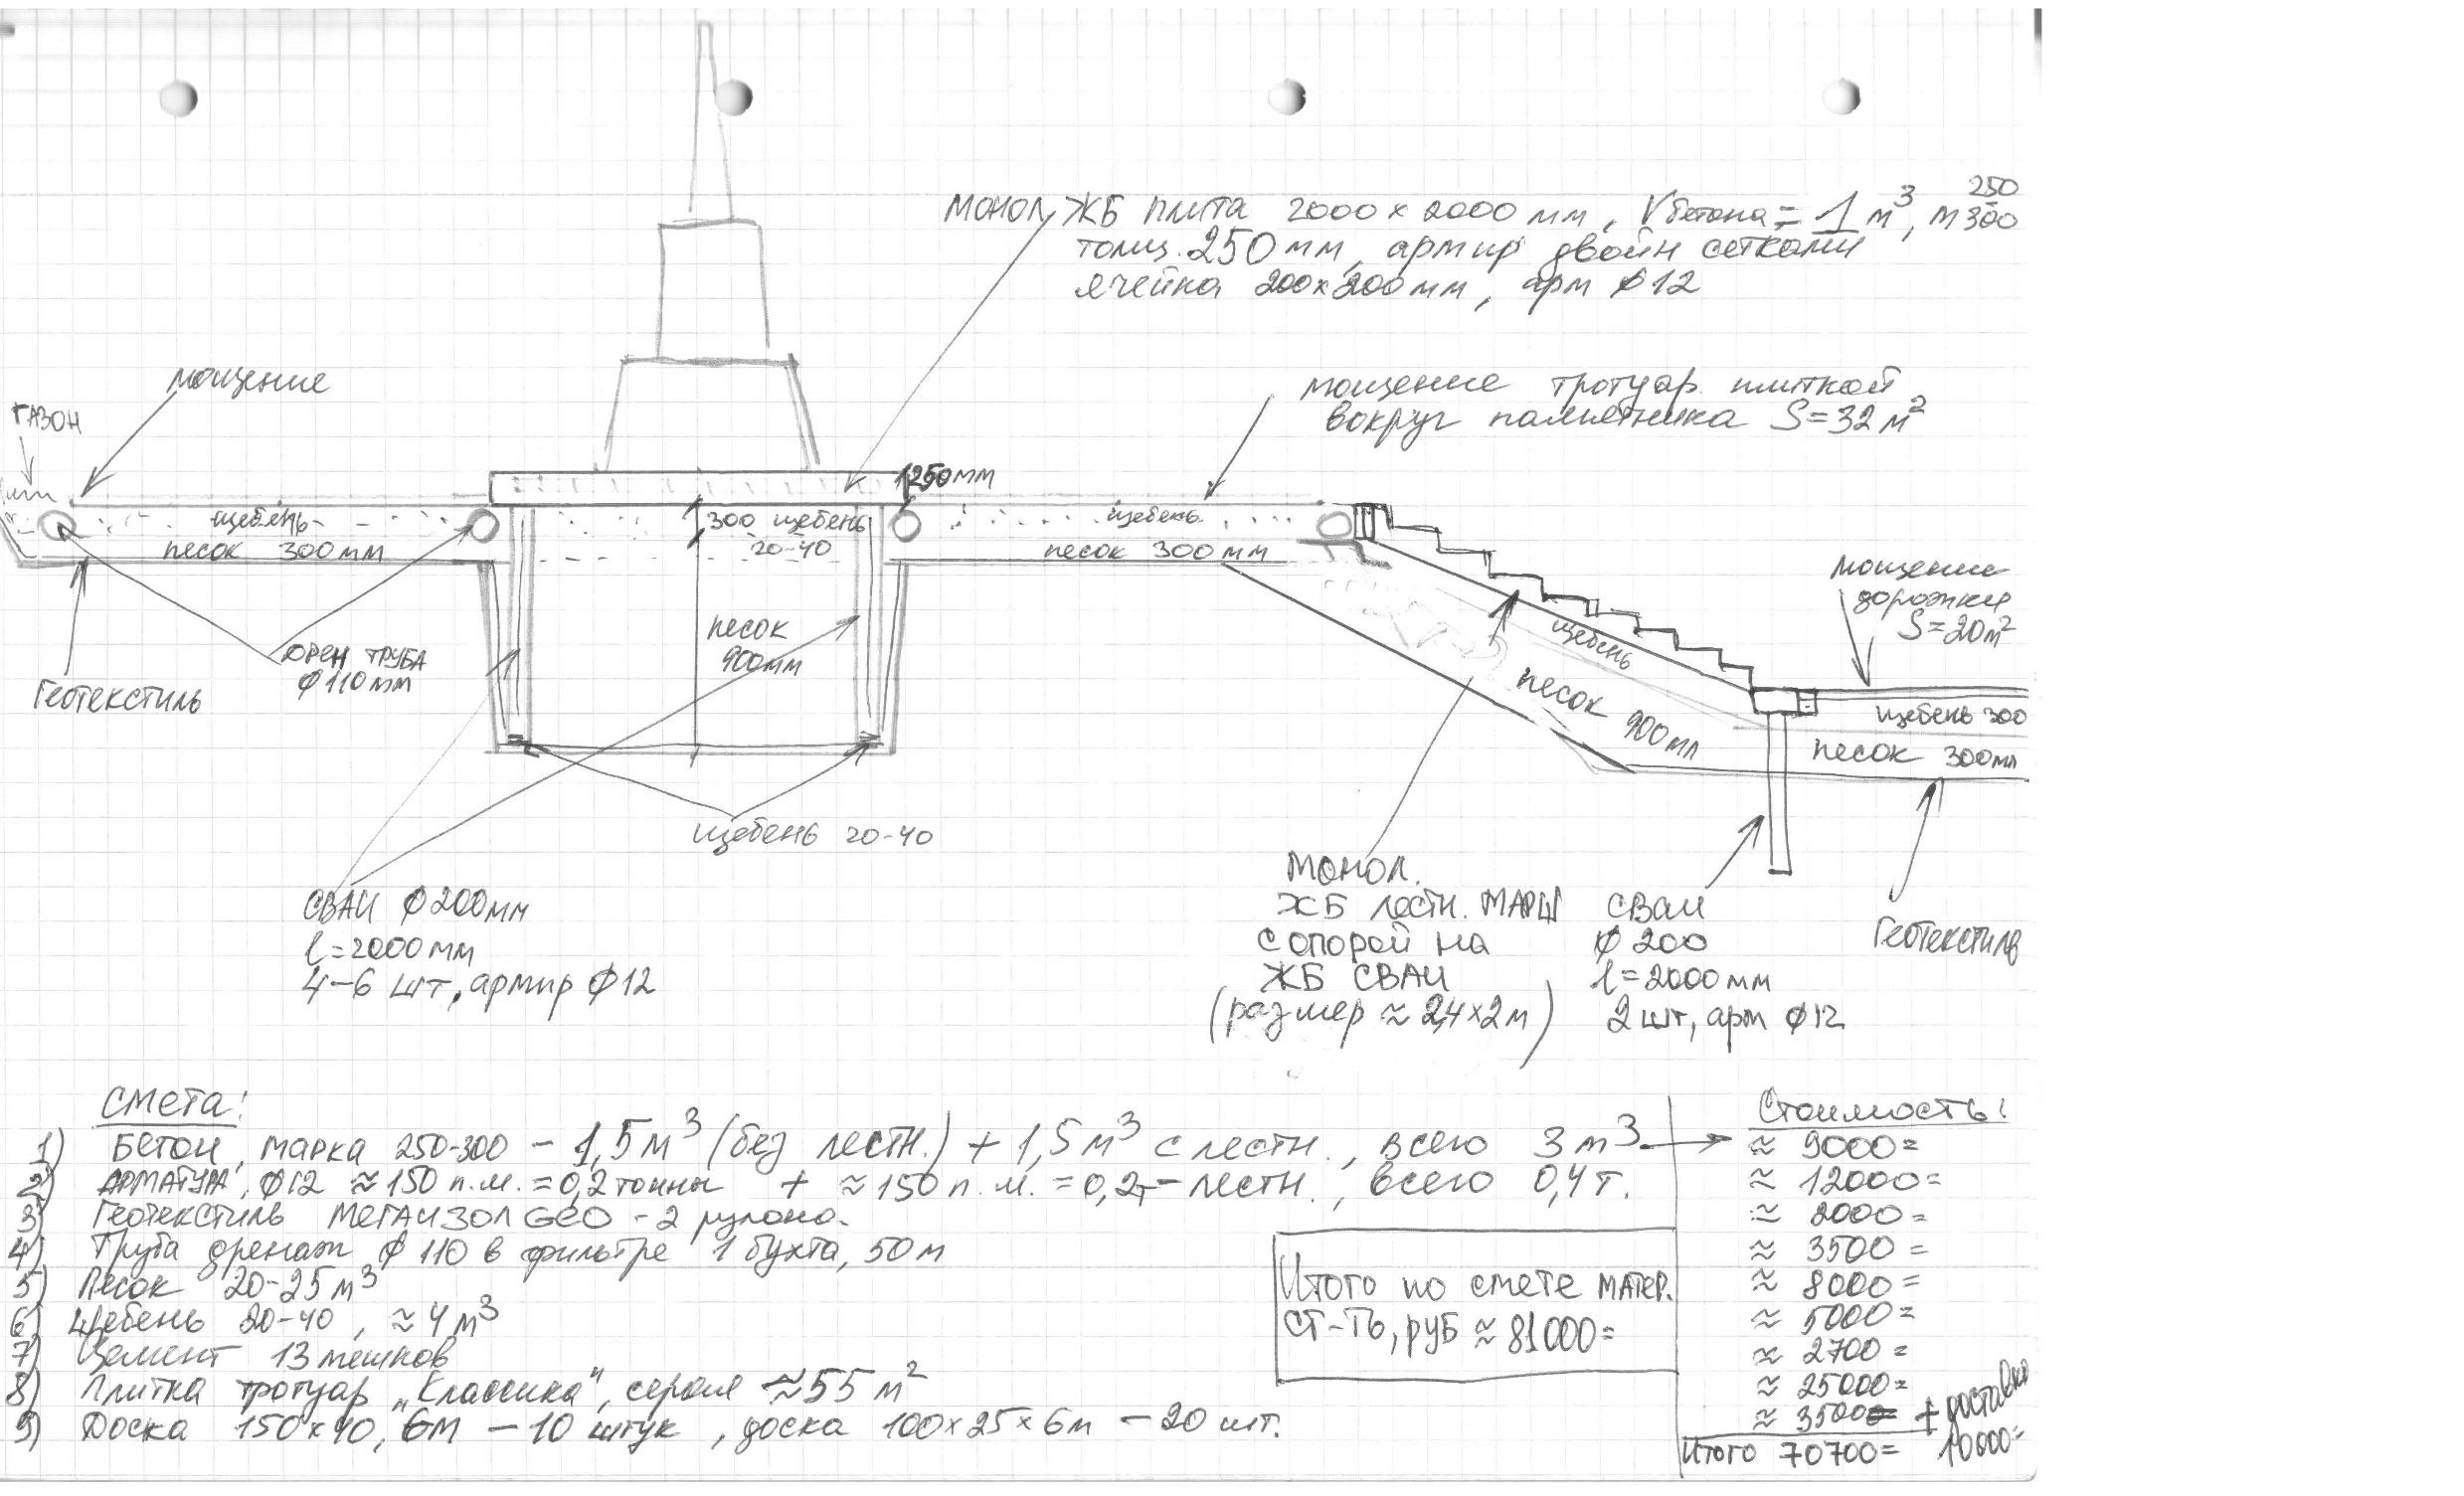 монол ЖБ плита 2000 x 2000 мм, Vбетона = 1 м³, м 300
250
толщ. 250 мм, армир двойн сетками
ячейка 200x200мм, арм ⌀12
мощение
газон
мощение тротуар. плиткой
вокруг памятника S=32 м²
250мм
щебень
песок 300мм
300 щебень
20-40
щебень
песок 300мм
мощение
дорожки
S=20м²
дрен труба
⌀110мм
Геотекстиль
песок
900мм
щебень
песок 900мм
щебень 300
песок 300мм
щебень 20-40
сваи ⌀200мм
l=2000мм
4-6 шт, армир ⌀12
монол.
ЖБ лестн. марш
с опорой на
ЖБ сваи
(размер ≈ 2,4x2м)
сваи
⌀ 200
l=2000мм
2 шт, арм ⌀12
Геотекстиль
смета:
1) Бетон, марка 250-300 - 1,5 м³ (без лестн.) + 1,5 м³ с лестн., всего 3 м³
2) Арматура, ⌀12 ≈150 п.м. = 0,2 тонны + ≈150 п.м. = 0,2т - лестн., всего 0,4 т.
3) Геотекстиль МЕГАИЗОЛ GEO - 2 рулона.
4) Труба дренаж ⌀ 110 в фильтре 1 бухта, 50 м
5) Песок 20-25 м³
6) Щебень 20-40, ≈ 4 м³
7) Цемент 13 мешков
8) Плитка тротуар „Классика", серая ≈55 м²
9) Доска 150x40, 6м - 10 штук, доска 100x25x6м - 20 шт.
Итого по смете матер.
ст-ть, руб ≈ 81000=
Стоимость:
≈ 9000=
≈ 12000=
≈ 2000=
≈ 3500=
≈ 8000=
≈ 5000=
≈ 2700=
≈ 25000=
≈ 3500= + доставка
Итого 70700= 10000=